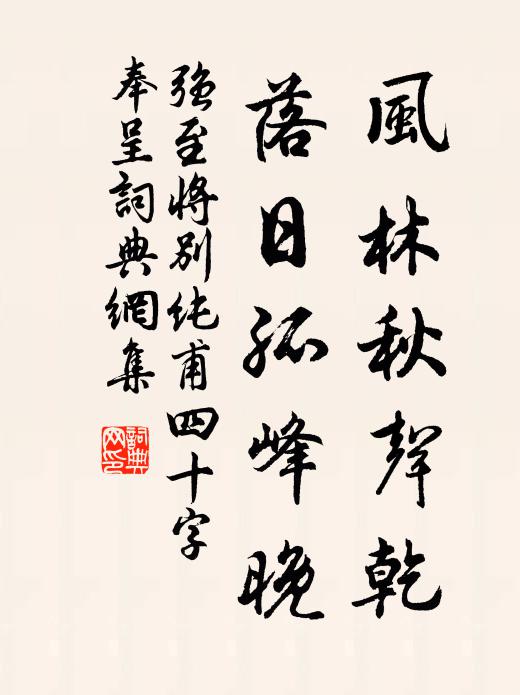 風林秋聲乾
落日孤峰晚
强至將別純甫四十字
奉呈詞典網集
詞典網印